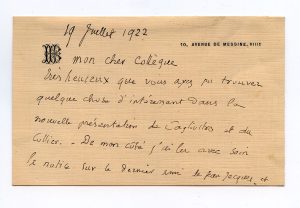 19 Juillet 1922
10, AVENUE DE MESSINE, VIIIE
mon cher Collègue
très heureux que vous ayez pu trouver
quelque chose d'intéressant dans la
nouvelle présentation de et du
Collier. - De mon côté j'ai lu avec soin
la notice sur le dernier par Jacques, et